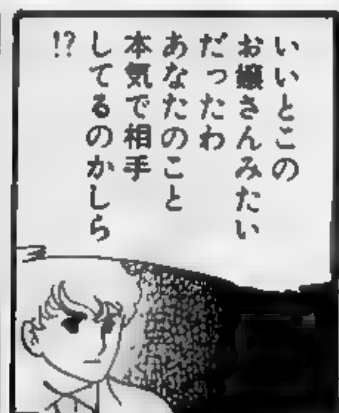 いいとこの
お嬢さんみたい
だったわ
あなたのこと
本気で相手
してるのかしら
!?